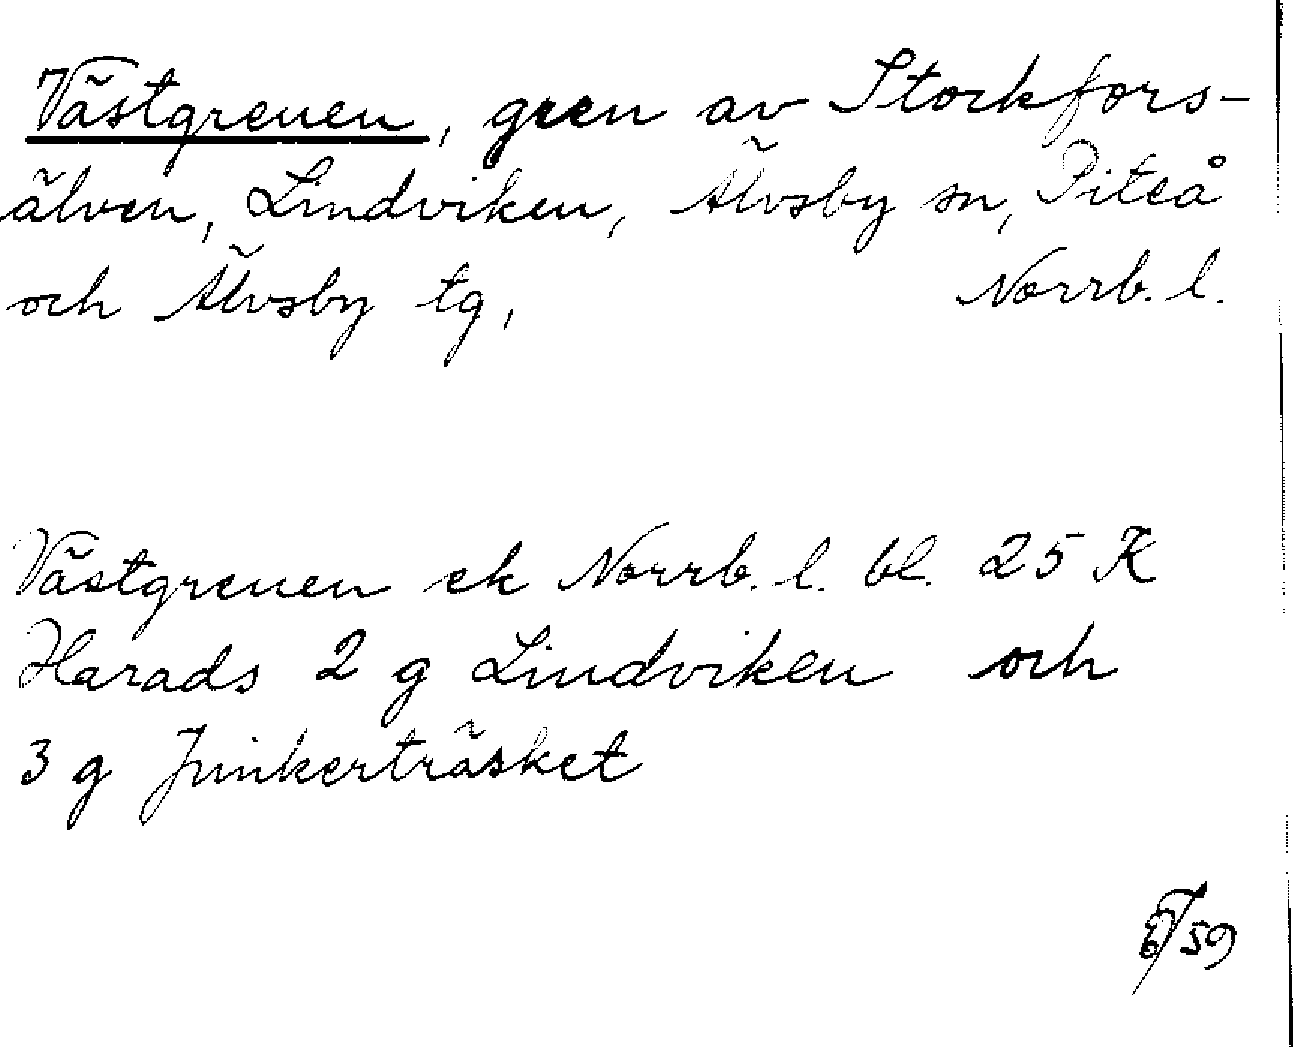 Västgrenen, gren av Stockfors-
älven, Lindviken, Älvsby sn, Piteå
och Älvsby tg, Norrb. l.
Västgrenen ek Norrb. l. bl. 25 K
Harads 2 g Lindviken och
3 g Junkerträsket
59